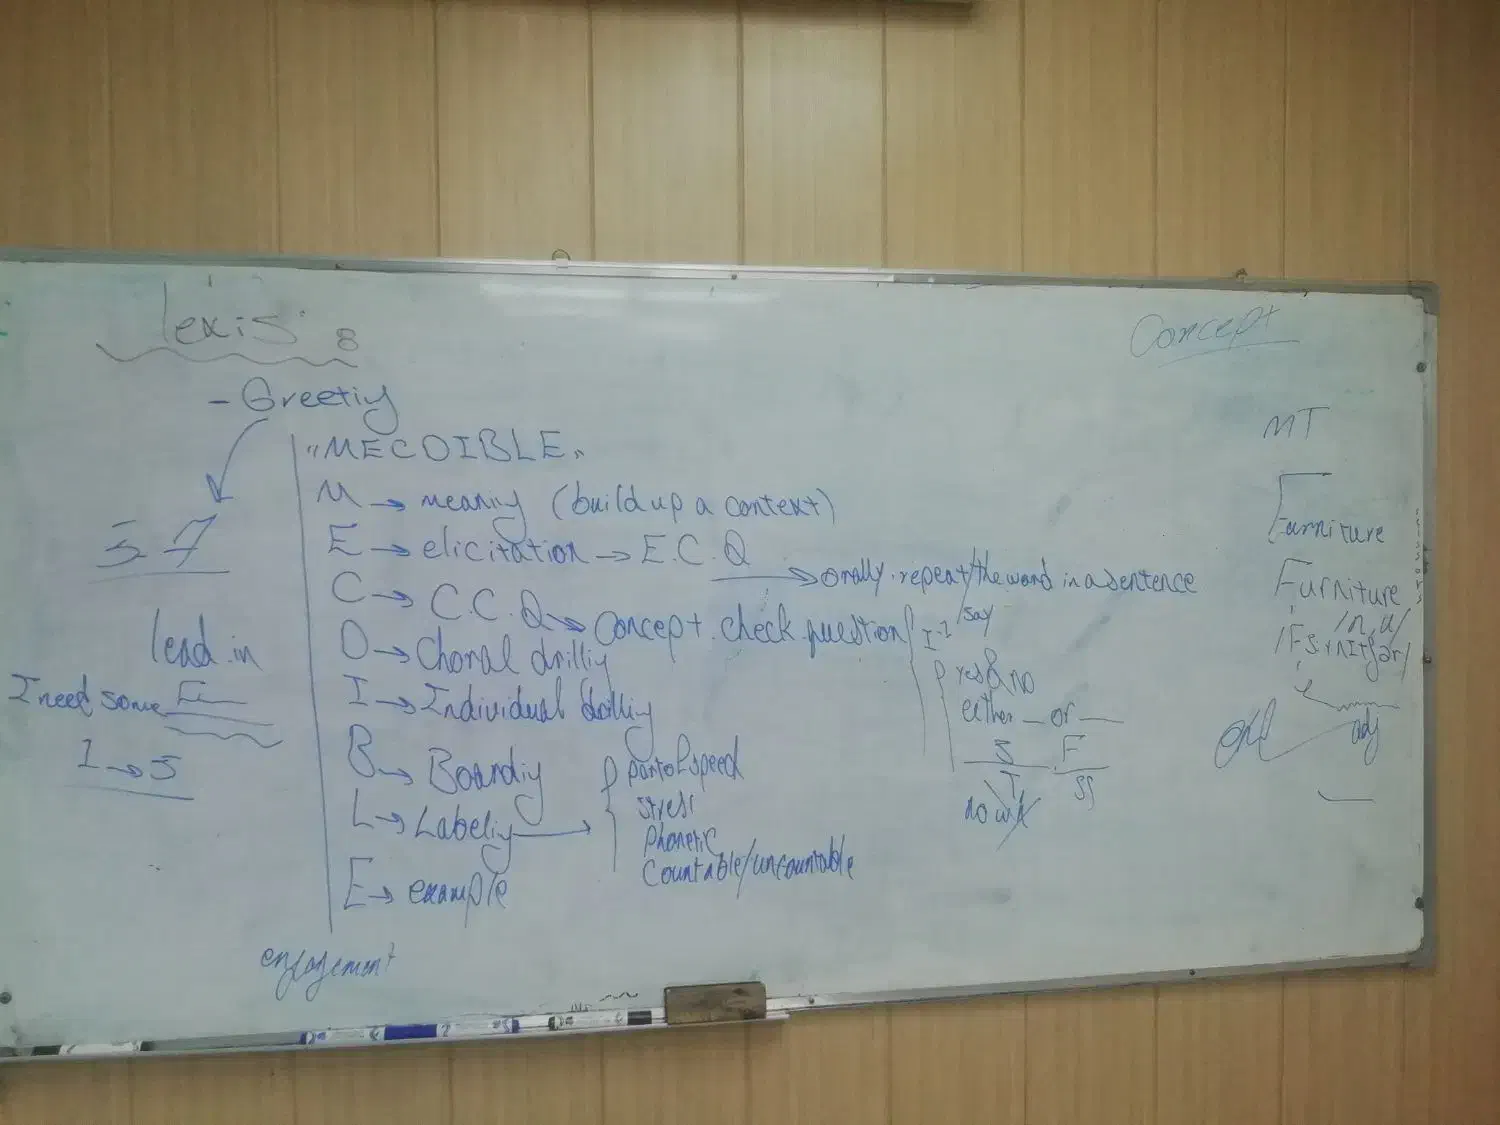 lexis:
- Greeting
5-7
lead in
I need some F
I → S
"MECDIBLE"
M → meaning (build up a context)
E → elicitation → E.C.Q → orally. repeat/the word in a sentence
C → C.C.Q → Concept. check question
D → Choral drilling
I → Individual drilling
B → Boarding
L → Labeling → part of speed
stress
Phonetic
Countable/uncountable
E → example
engagement
I-I /say
yes & no
either _ or __
S F
T
Concept
MT
Furniture
Furniture
/n, u/
adj